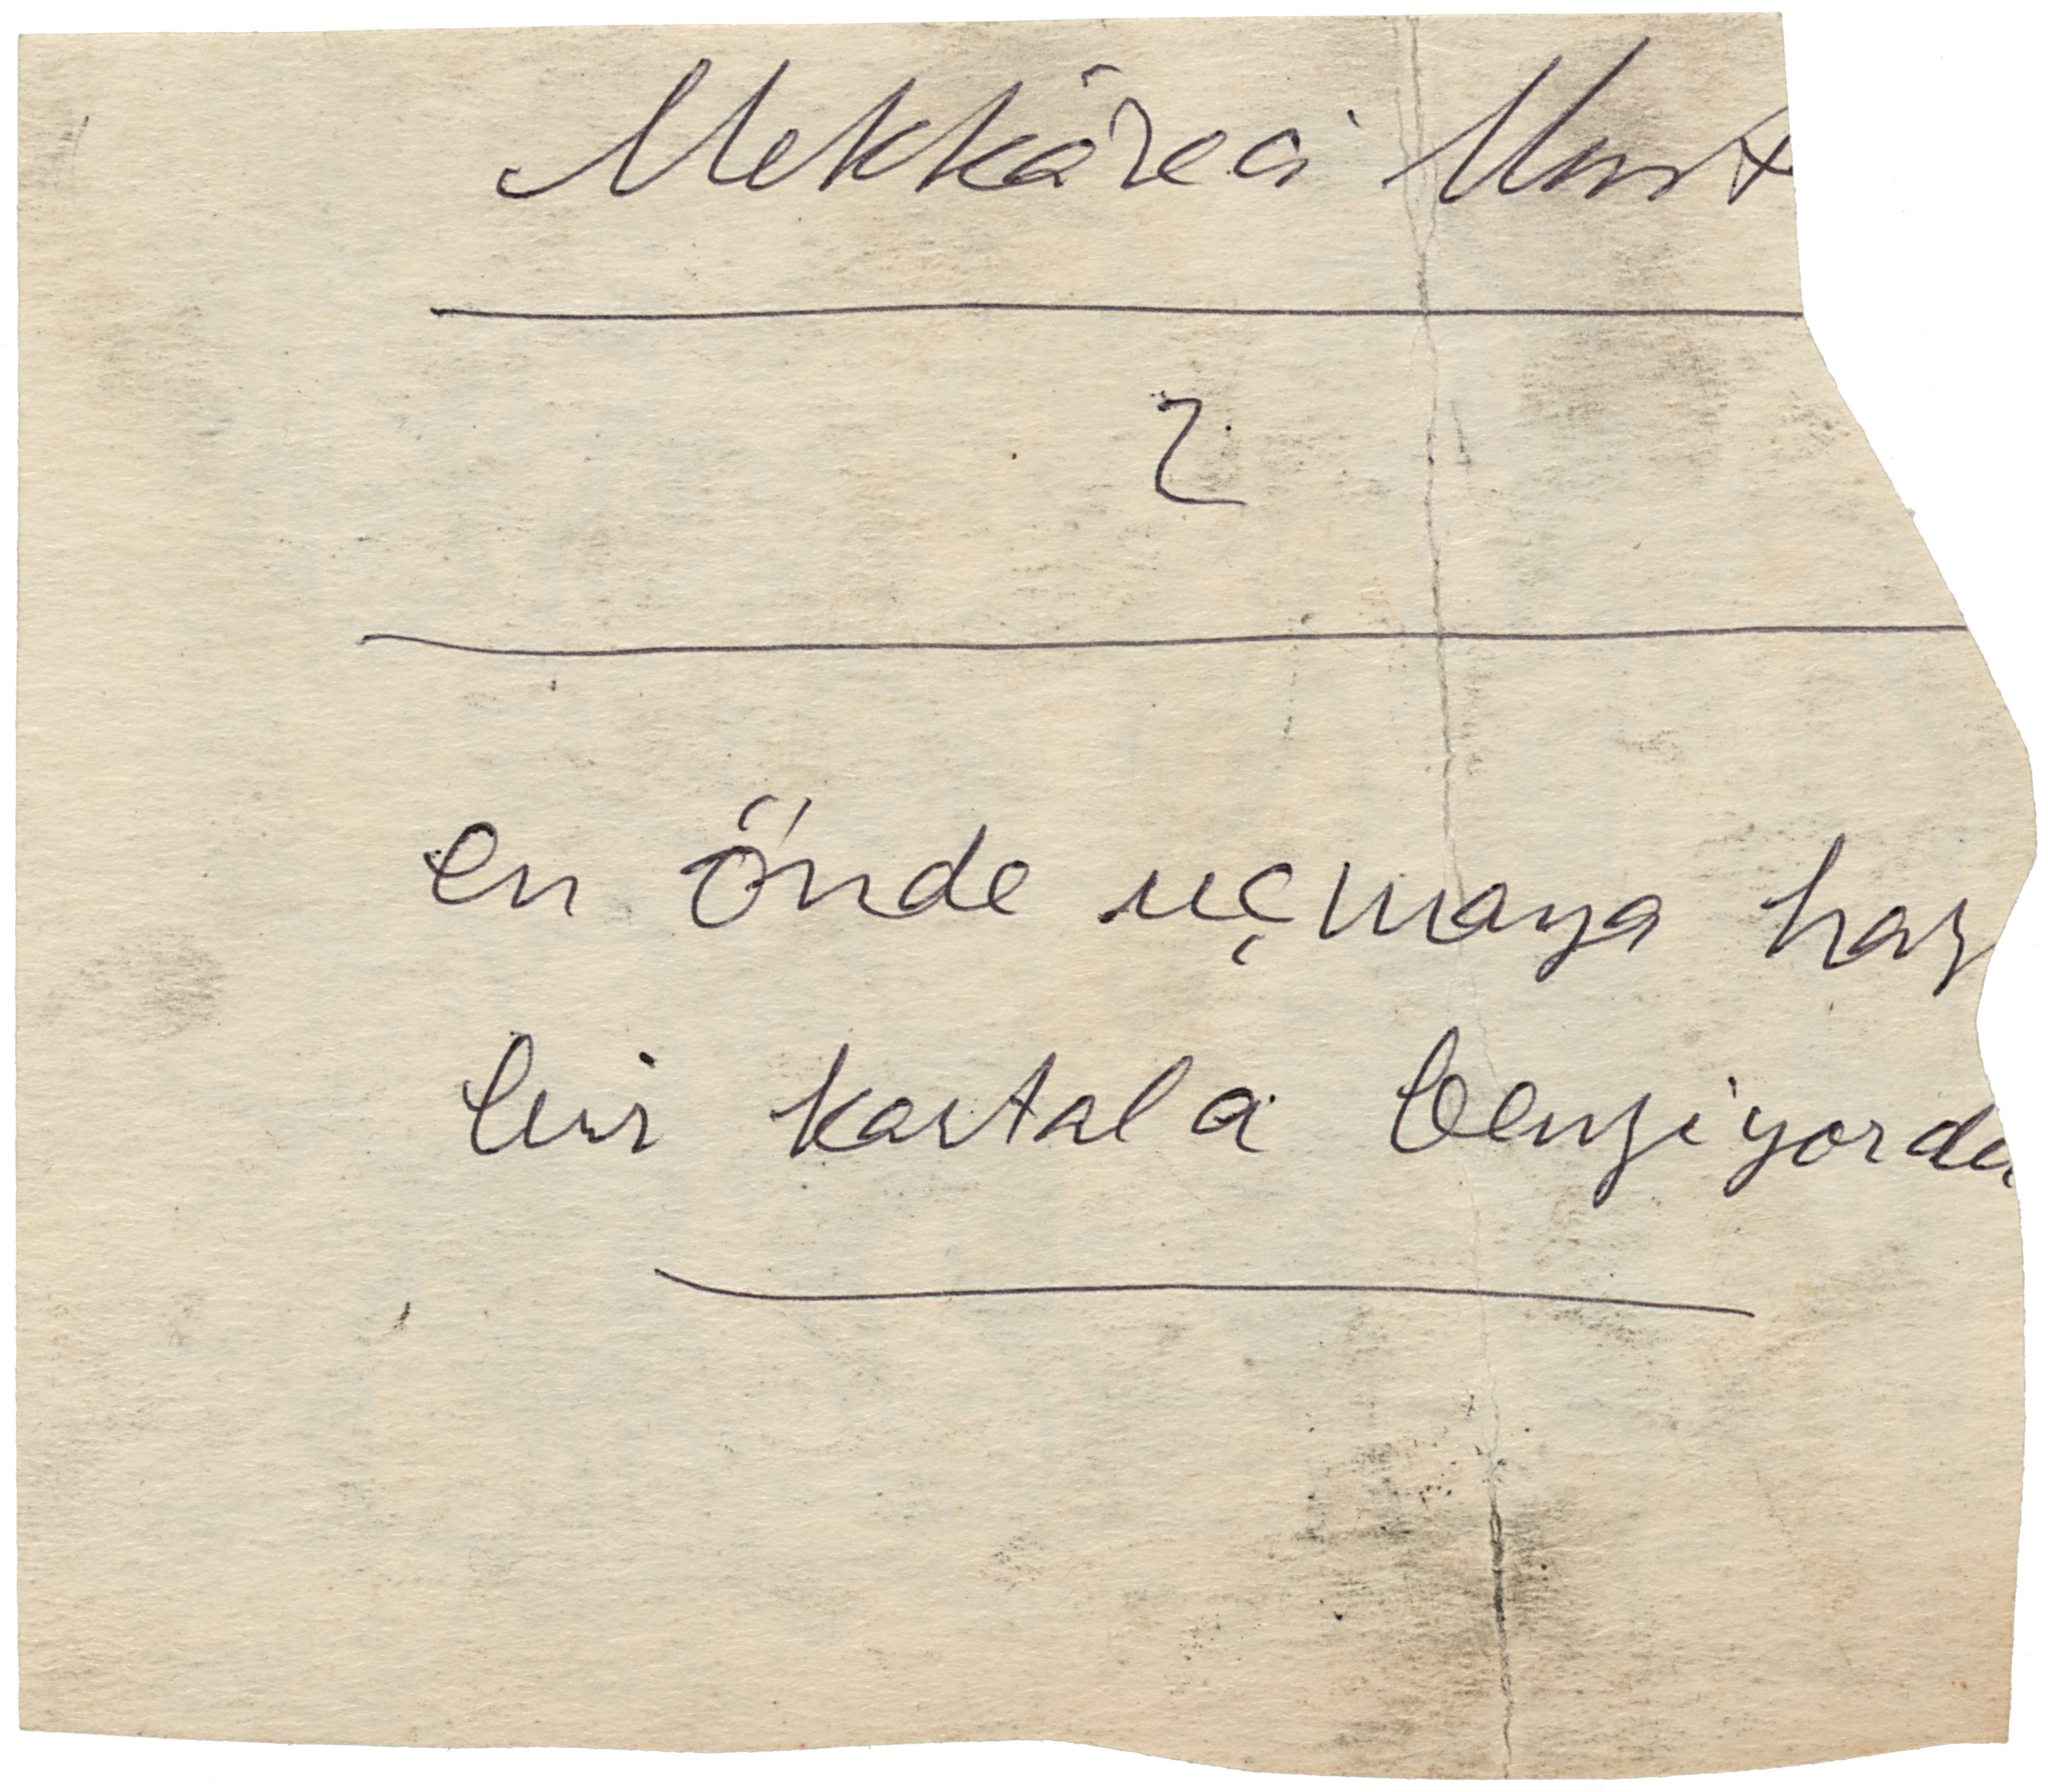 Mekkâreci Must
2
en önde uçmaya haz
bir kartala benziyordu